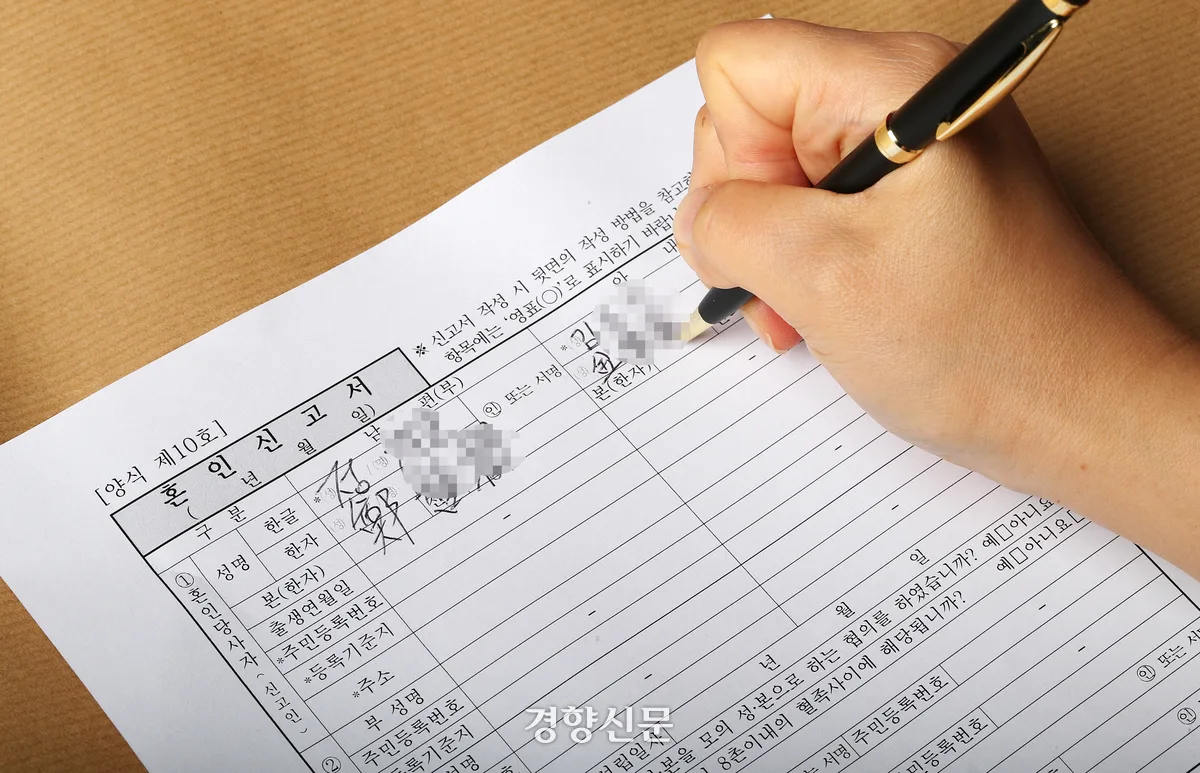 ※ 신고서 작성 시 뒷면의 작성 방법을 참고하
항목에는 '영표(○)'로 표시하기 바랍니
[양식 제10호]
혼 인 신 고 서
( 년 월 일)
구 분
남 편(부)
아 내
①
혼인당사자(신고인)
성명
한글
*정
김
인 또는 서명
한자
鄭
본(한자)
본(한자)
출생연월일
*주민등록번호
-
-
*등록기준지
*주소
부 성명
주민등록번호
-
-
등록기준지
②
성명
주민등록번호
-
-
년 월 일
성·본을 모의 성·본으로 하는 협의를 하였습니까? 예□아니요□
8촌이내의 혈족사이에 해당됩니까? 예□아니요□
또는 서명
주민등록번호
-
인 또는 서
주민등록번호
-
인
경향신문